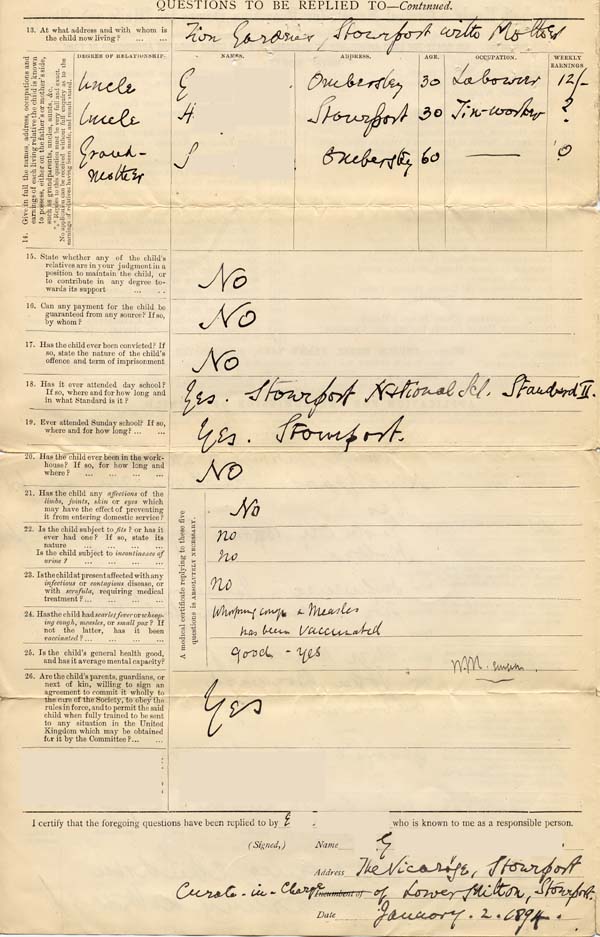 QUESTIONS TO BE REPLIED TO—Continued.
13. At what address and with whom is the child now living? ... ... Zion Gardens, Stourport with Mother
14. Give in full the names, address, occupations and
earnings of each living relative the child is known
to possess, either on the father's or mother's side,
such as grandparents, uncles, aunts, &c.
*** Replies to this question must be very full and exact.
No application can be received without full enquiry as to the
earnings of relatives having been made, and result stated.
DEGREE OF RELATIONSHIP. NAMES. ADDRESS. AGE. OCCUPATION. WEEKLY EARNINGS.
Uncle E Ombersley 30 Labourer 12/-
Uncle H Stourport 30 Tin-worker ?
Grand-
mother S Ombersley 60 — 0
15. State whether any of the child's
relatives are in your judgment in a
position to maintain the child, or
to contribute in any degree to-
wards its support ... ...
No
16. Can any payment for the child be
guaranteed from any source? If so,
by whom? ... ... ...
No
17. Has the child ever been convicted? If
so, state the nature of the child's
offence and term of imprisonment
No
18. Has it ever attended day school?
If so, where and for how long and
in what Standard is it? ...
Yes. Stourport National Scl. Standard II.
19. Ever attended Sunday school? If so,
where and for how long? ... ...
Yes. Stourport.
20. Has the child ever been in the work-
house? If so, for how long and
where? ... ... ... ...
No
A medical certificate replying to these five
questions is ABSOLUTELY NECESSARY.
21. Has the child any affections of the
limbs, joints, skin or eyes which
may have the effect of preventing
it from entering domestic service?
No
22. Is the child subject to fits? or has it
ever had one? If so, state its
nature ... ... ... ...
no
Is the child subject to incontinence of
urine? ... ... ... ...
no
23. Is the child at present affected with any
infectious or contagious disease, or
with scrofula, requiring medical
treatment? ... ... ... ...
no
24. Has the child had scarlet fever or whoop-
ing cough, measles, or small pox? If
not the latter, has it been
vaccinated? ... ... ... ...
Whooping cough & Measles
has been vaccinated
25. Is the child's general health good,
and has it average mental capacity?
good - yes
26. Are the child's parents, guardians, or
next of kin, willing to sign an
agreement to commit it wholly to
the care of the Society, to obey the
rules in force, and to permit the said
child when fully trained to be sent
to any situation in the United
Kingdom which may be obtained
for it by the Committee? ... ...
Yes
I certify that the foregoing questions have been replied to by E who is known to me as a responsible person.
(Signed,) Name E
Address The Vicarage, Stourport
Curate-in-Charge Incumbent of of Lower Mitton, Stourport.
Date January. 2. 1894.